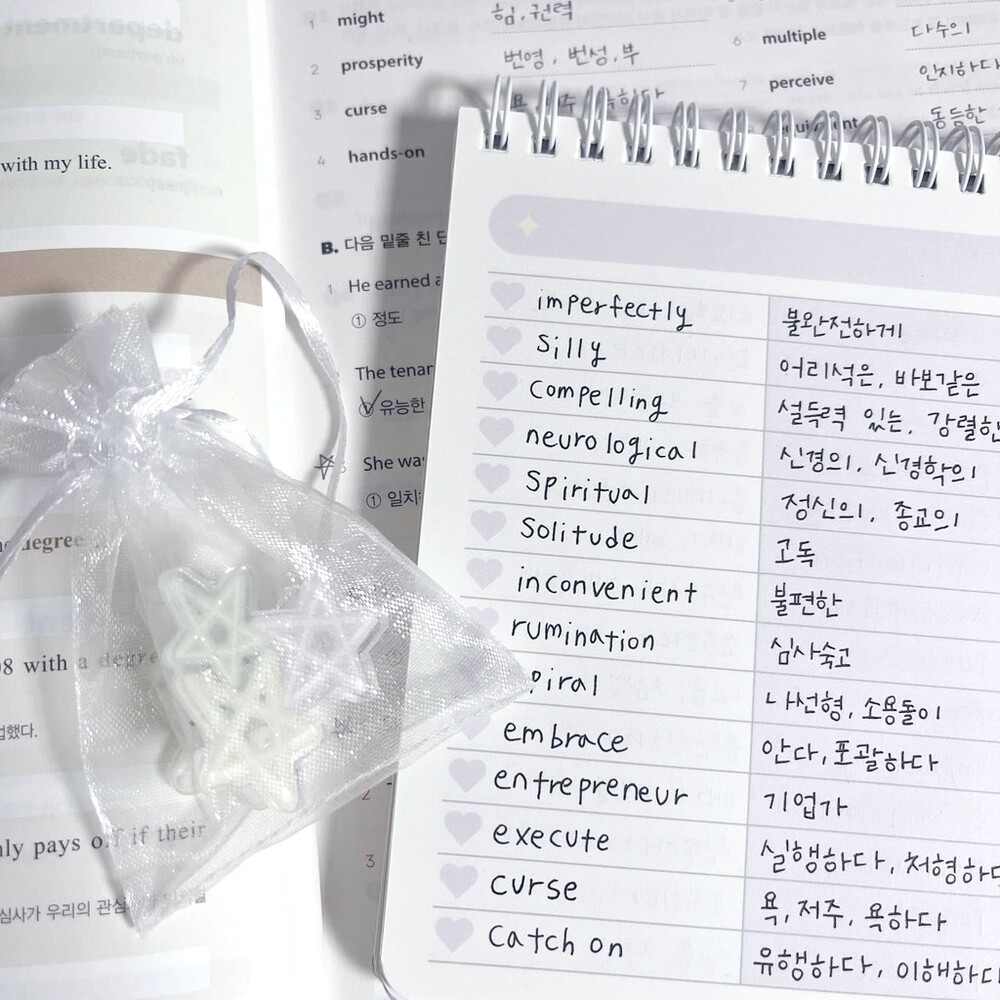 with my life.
degree
08 with a degree
업했다.
nly pays off if their
심사가 우리의 관심
1 might 힘, 권력
2 prosperity 번영, 번성, 부
3 curse
4 hands-on
6 multiple 다수의
7 perceive 인지하다
동등한
B. 다음 밑줄 친
1 He earned
① 정도
The tenar
① 유능한
3 She was
① 일치
2
3
imperfectly 불완전하게
silly 어리석은, 바보같은
compelling 설득력 있는, 강렬한
neurological 신경의, 신경학의
spiritual 정신의, 종교의
solitude 고독
inconvenient 불편한
rumination 심사숙고
piral 나선형, 소용돌이
embrace 안다, 포괄하다
entrepreneur 기업가
execute 실행하다, 처형하다
curse 욕, 저주, 욕하다
catch on 유행하다, 이해하다